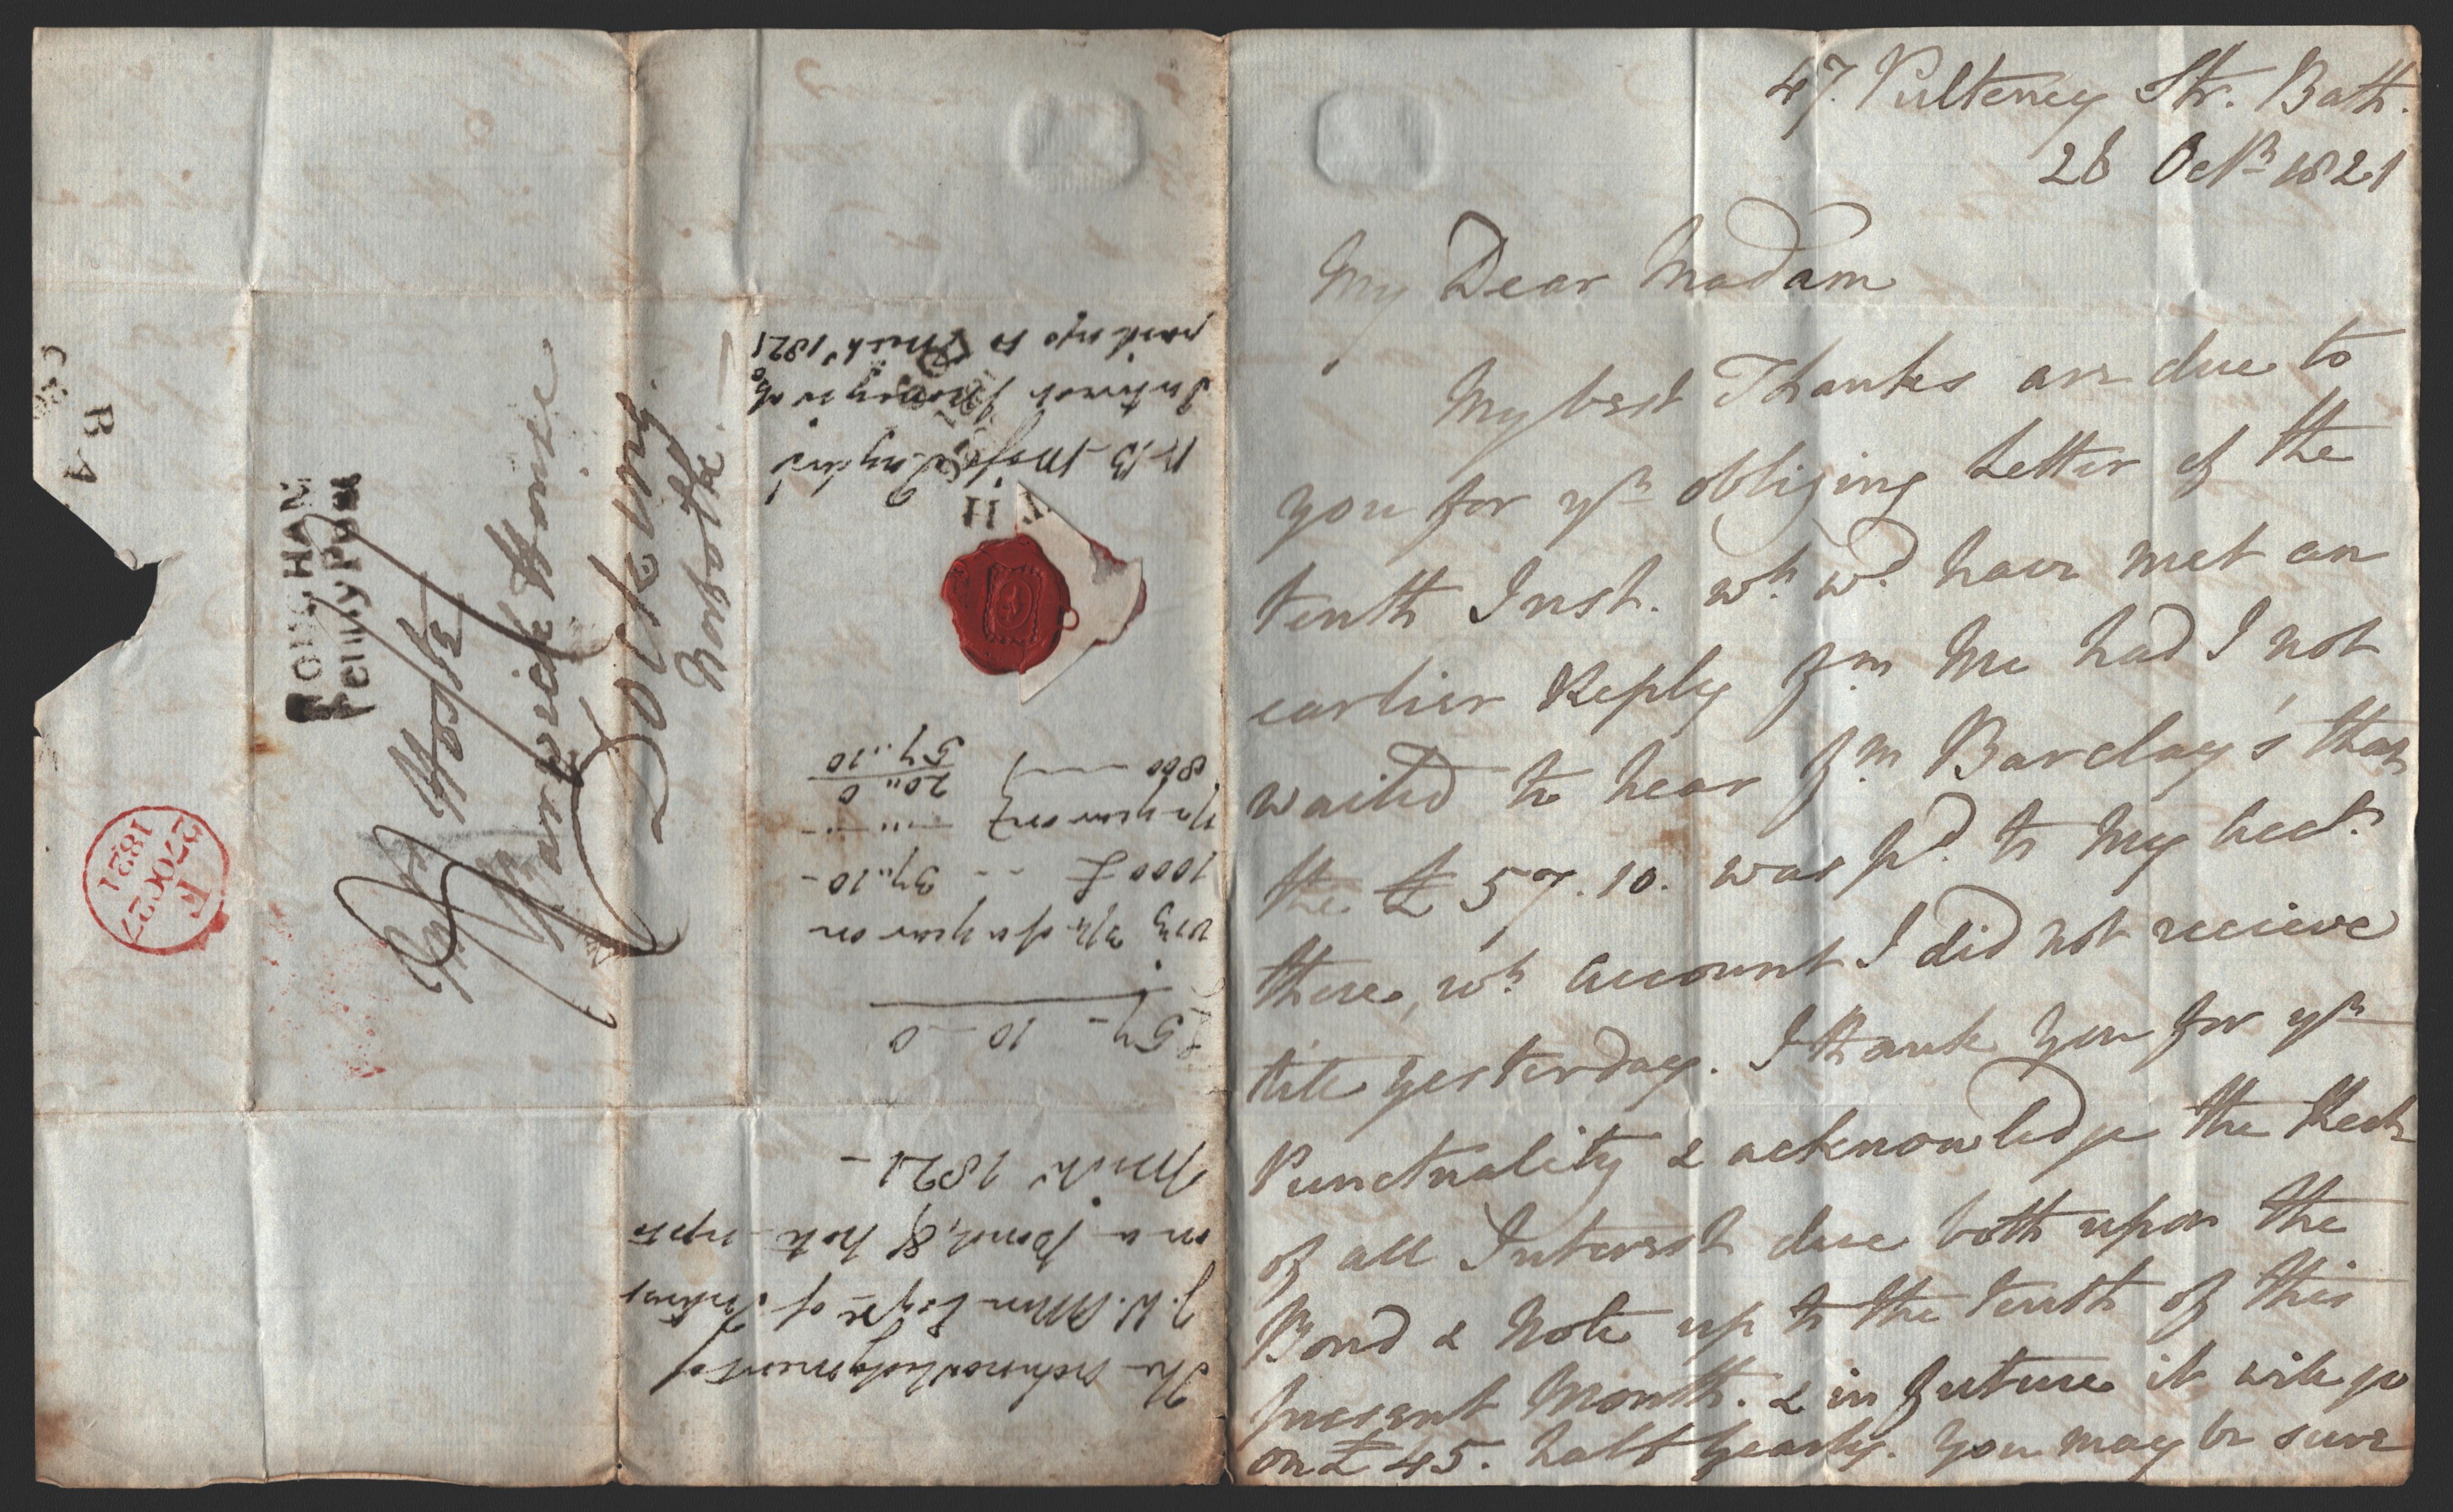 47. Pulteney Str. Bath.
26 Octr. 1821
My Dear Madam
My best Thanks are due to
you for yr. obliging Letter of the
tenth Inst. wh. wd. have met an
earlier Reply fm. Me had I not
waited to hear fm. Barclay's that
the £57.10. was pd. to My Acct.
there, wh. account I did not recieve
till yesterday. I thank You for yr.
Punctuality & acknowledge the Rect.
of all Interest due both upon the
Bond & Note up to the tenth of this
present Month. & in future it will go
on £45. half Yearly. You may be sure
The acknowledgment of
J. W. of Interest
on a Bond, & Note up to
Michs. 1821 -
£57 - 10 - 0
viz 3/4 of a year on
1000 £ - - 37 " 10 -
1/2 year on
800 20 " 0
57 " 10
N.B.
Interest Money is
paid up to Michs. 1821
BATH
HOUGHAM
Penny Post
House
Dover
F
27 OC 27
1821